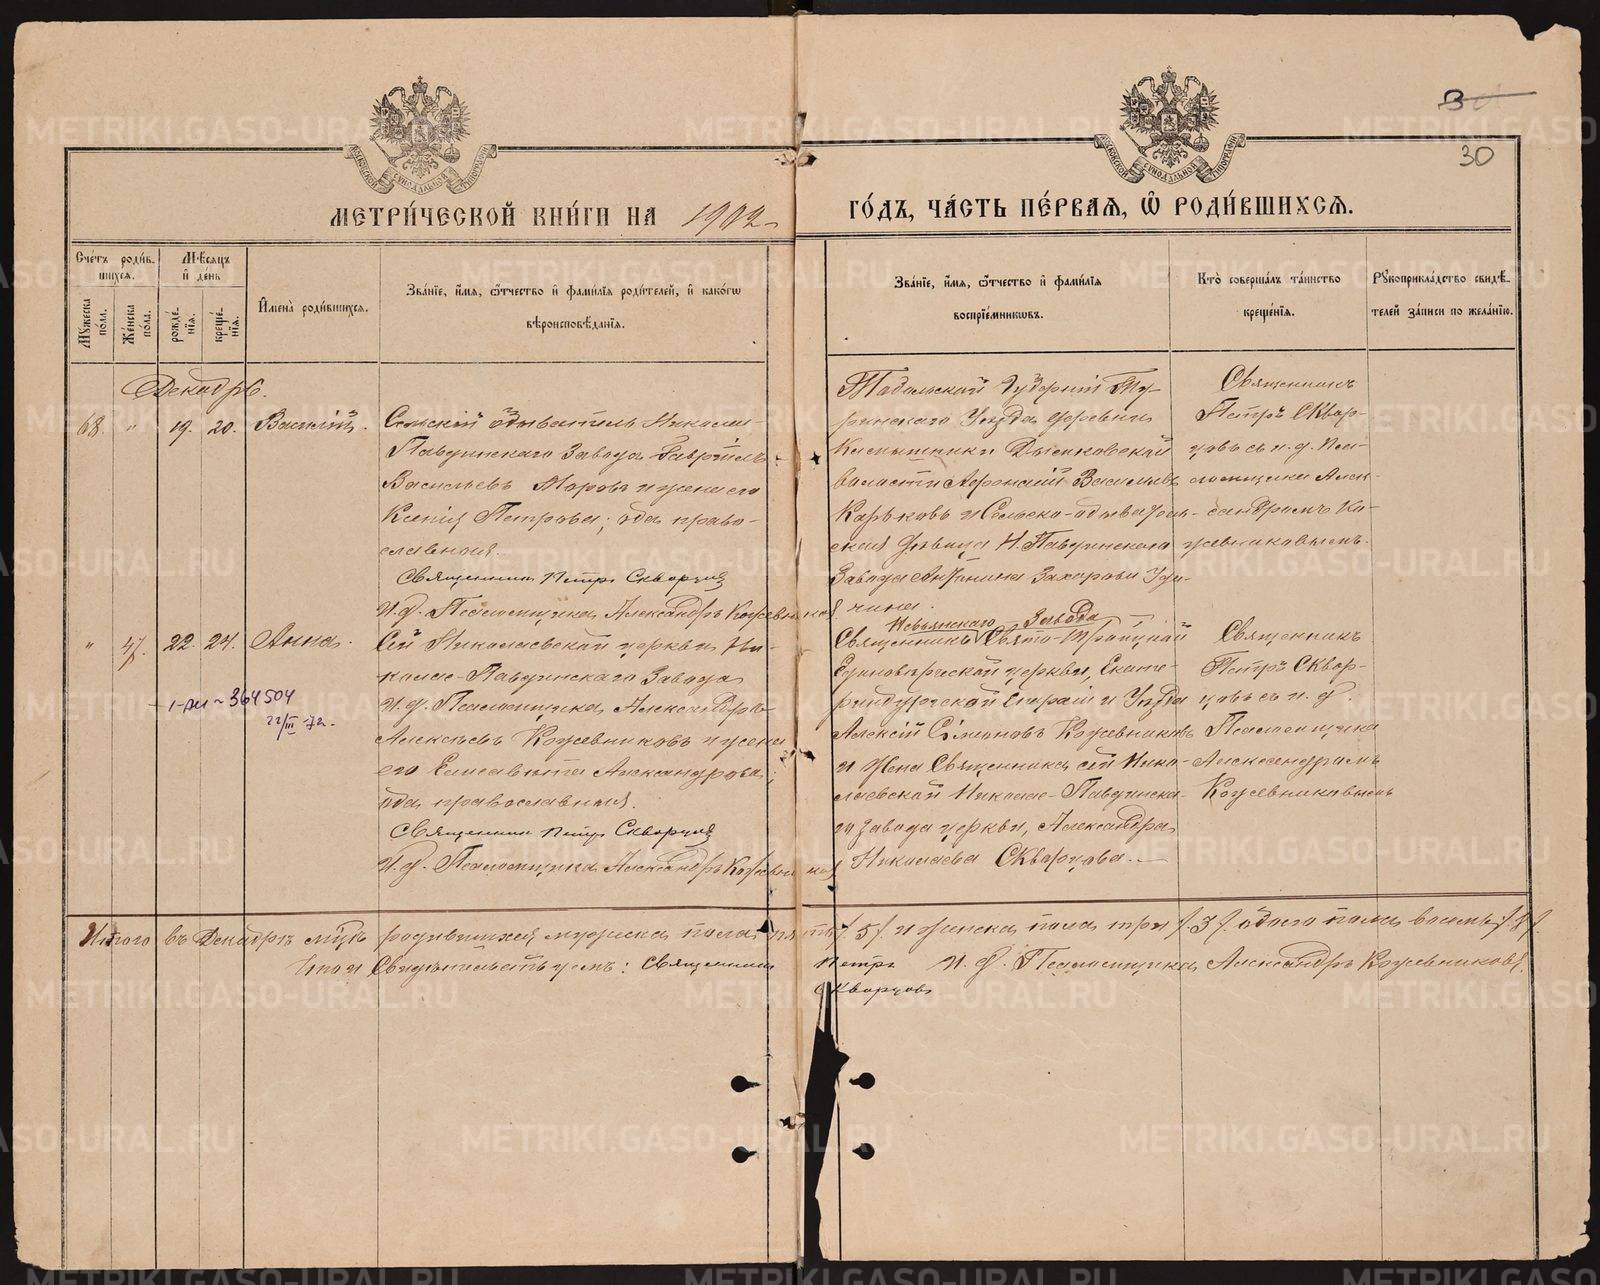 30
МЕТРИ́ЧЕСКОЙ КНИ́ГИ НА 1902
ГО́ДЪ, ЧА́СТЬ ПЕ́РВАЯ, Ѿ РОДИ́ВШИХСѦ.
Сче́тъ роди́в-
шихся.
Мѣ́сяцъ
и҆ де́нь
Мꙋ́жеска по́ла.
Же́нска по́ла.
рожде́нїя.
креще́нїя.
И҆мена̀ роди́вшихся.
Зва́нїе, и҆́мя, ѻ҆́тчество и҆ фами́лїя роди́телей, и҆ како́гѡ
вѣроисповѣ́данїя.
Зва́нїе, и҆́мя, ѻ҆́тчество и҆ фами́лїя
воспрїе́мникѡвъ.
Кто̀ соверша́лъ та́инство
креще́нїя.
Рꙋкоприкла́дство свидѣ́-
телей за́писи по жела́нїю.
Декабрь.
68. " 19. 20. Василій.
Сельскій обыватель Николае-
Павдинскаго Завода Гавріилъ
Васильевъ Моровъ и жена его
Ксенія Петрова; оба право-
славныя.
Священникъ Петръ Скворцовъ
И. д. Псаломщика Александръ Кожевниковъ
Тобольской Губерніи Ту-
ринскаго Уѣзда деревни
волости Аѳонасій Васильевъ
Карьковъ и Сельско-обыватель-
ская дѣвица Н. Павдинскаго
Завода Антонина Захарова Уди-
чина.
Священникъ
Петръ Сквор-
цовъ съ и. д. Пса-
ломщика Алек-
сандромъ Ко-
жевниковымъ.
" 47. 22. 24. Анна.
Сей Николаевской церкви Ни-
колае-Павдинскаго Завода
И. д. Псаломщика Александръ
Алексѣевъ Кожевниковъ и жена
его Елисавета Александрова;
оба православныя.
Священникъ Петръ Скворцовъ
И. д. Псаломщика Александръ Кожевниковъ
364504
22/III-72.
Невьянскаго Завода
Священникъ Свято-Троицкой
Единовѣрческой церкви, Екате-
ринбургской Епархіи и Уѣзда
Алексій Симеоновъ Кожевниковъ
и Жена Священника сей Нико-
лаевской Николае-Павдинска-
го Завода церкви, Александра
Николаева Скворцова.
Священникъ
Петръ Сквор-
цовъ съ и. д.
Псаломщика
Александромъ
Кожевниковымъ
Итого въ Декабрѣ мѣсяцѣ родившихся мужеска пола пять /5/. и женска пола три /3/. обоего пола восемь /8/
Что и Свидѣтельствуемъ: Священникъ Петръ И. д. Псаломщика Александръ Кожевниковъ.
Скворцовъ
METRIKI.GASO-URAL.RU